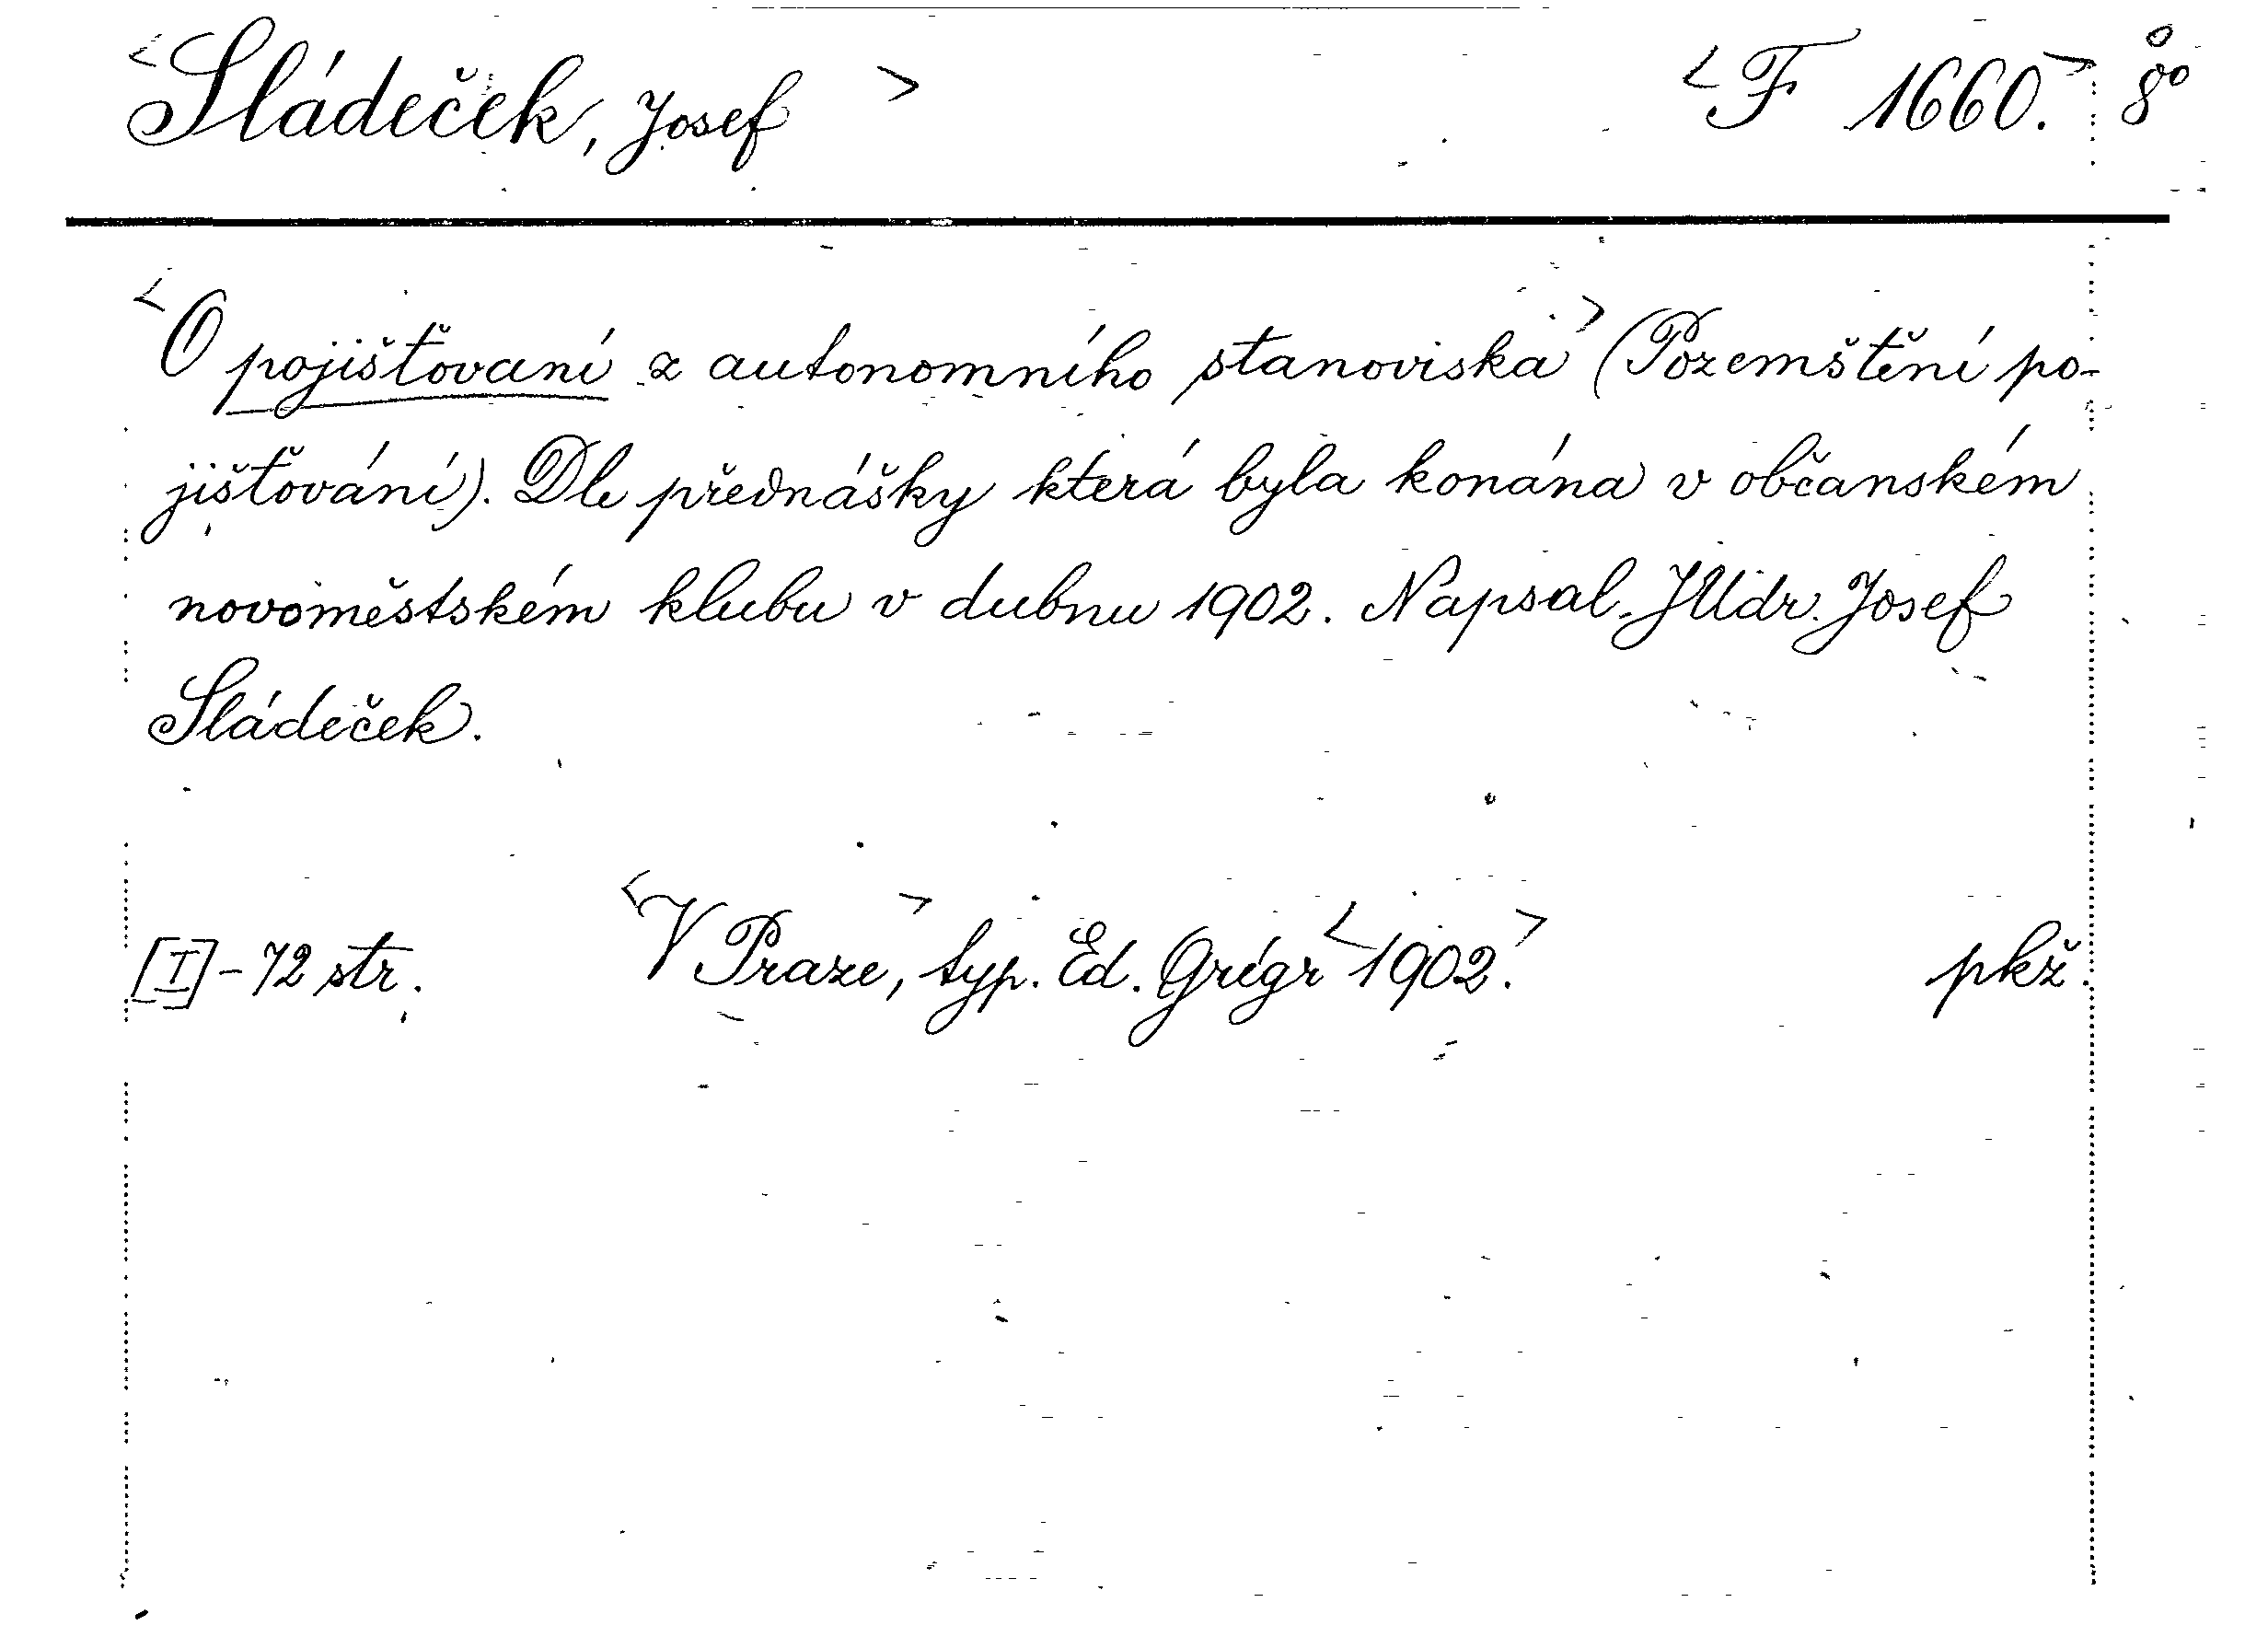 <Sládeček, Josef> <F 1660.> 8°
<O pojišťovaní z autonomního stanoviska> (Pozemštění po-
jišťování). Dle přednášky která byla konána v občanském
novoměstském klubu v dubnu 1902. Napsal JUdr. Josef
Sládeček.
[I]-72 str. <V Praze,> typ. Ed. Grégr <1902.> pkž.